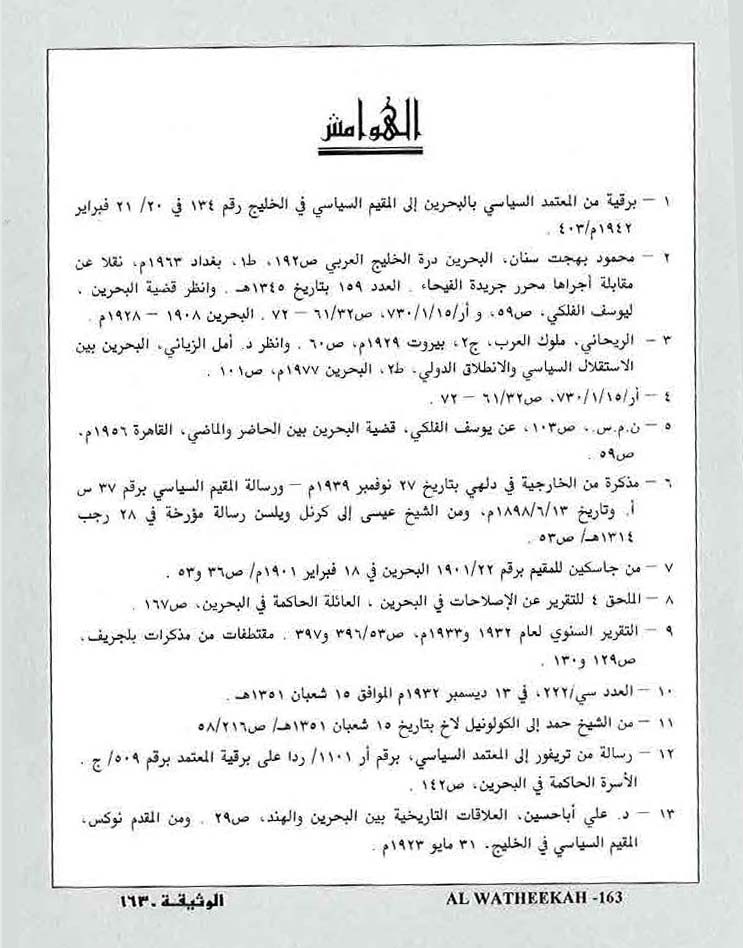 الهوامش
١ – برقية من المعتمد السياسي بالبحرين إلى المقيم السياسي في الخليج رقم ١٣٤ في ٢٠/ ٢١ فبراير
١٩٤٢م/٤٠٣ .
٢ – محمود بهجت سنان، البحرين درة الخليج العربي ص١٩٢، ط١، بغداد ١٩٦٣م، نقلا عن
مقابلة أجراها محرر جريدة الفيحاء . العدد ١٥٩ بتاريخ ١٣٤٥هـ . وانظر قضية البحرين ،
ليوسف الفلكي، ص٥٩، و أر/٧٣٠/١/١٥، ص٦١/٣٢ – ٧٢ . البحرين ١٩٠٨ – ١٩٢٨م .
٣ – الريحاني، ملوك العرب، ج٢، بيروت ١٩٢٩م، ص٦٠ . وانظر د. أمل الزياني، البحرين بين
الاستقلال السياسي والانطلاق الدولي، ط٢، البحرين ١٩٧٧م، ص١٠١ .
٤ – أر/٧٣٠/١/١٥، ص٦١/٣٢ – ٧٢ .
٥ – ن.م.س.، ص١٠٣، عن يوسف الفلكي، قضية البحرين بين الحاضر والماضي، القاهرة ١٩٥٦م،
ص٥٩ .
٦ – مذكرة من الخارجية في دلهي بتاريخ ٢٧ نوفمبر ١٩٣٩م – ورسالة المقيم السياسي برقم ٣٧ س
أ. وتاريخ ١٨٩٨/٦/١٣م، ومن الشيخ عيسى إلى كرنل ويلسن رسالة مؤرخة في ٢٨ رجب
١٣١٤هـ/ ص٥٣ .
٧ – من جاسكين للمقيم برقم ١٩٠١/٢٢ البحرين في ١٨ فبراير ١٩٠١م/ ص٣٦ و٥٣ .
٨ – الملحق ٤ للتقرير عن الإصلاحات في البحرين ، العائلة الحاكمة في البحرين، ص١٦٧ .
٩ – التقرير السنوي لعام ١٩٣٢ و١٩٣٣م، ص٣٩٦/٥٣ و٣٩٧ . مقتطفات من مذكرات بلجريف،
ص١٢٩ و١٣٠ .
١٠ – العدد سي/٢٢٢، في ١٣ ديسمبر ١٩٣٢م الموافق ١٥ شعبان ١٣٥١هـ .
١١ – من الشيخ حمد إلى الكولونيل لاخ بتاريخ ١٥ شعبان ١٣٥١هـ/ ص٥٨/٢١٦
١٢ – رسالة من تريفور إلى المعتمد السياسي، برقم أر ١١٠١/ ردا على برقية المعتمد برقم ٥٠٩/ ج .
الأسرة الحاكمة في البحرين، ص١٤٢ .
١٣ – د. علي أباحسين، العلاقات التاريخية بين البحرين والهند، ص٢٩ . ومن المقدم نوكس،
المقيم السياسي في الخليج، ٣١ مايو ١٩٢٣م .
الوثيقة - ١٦٣
AL WATHEEKAH -163